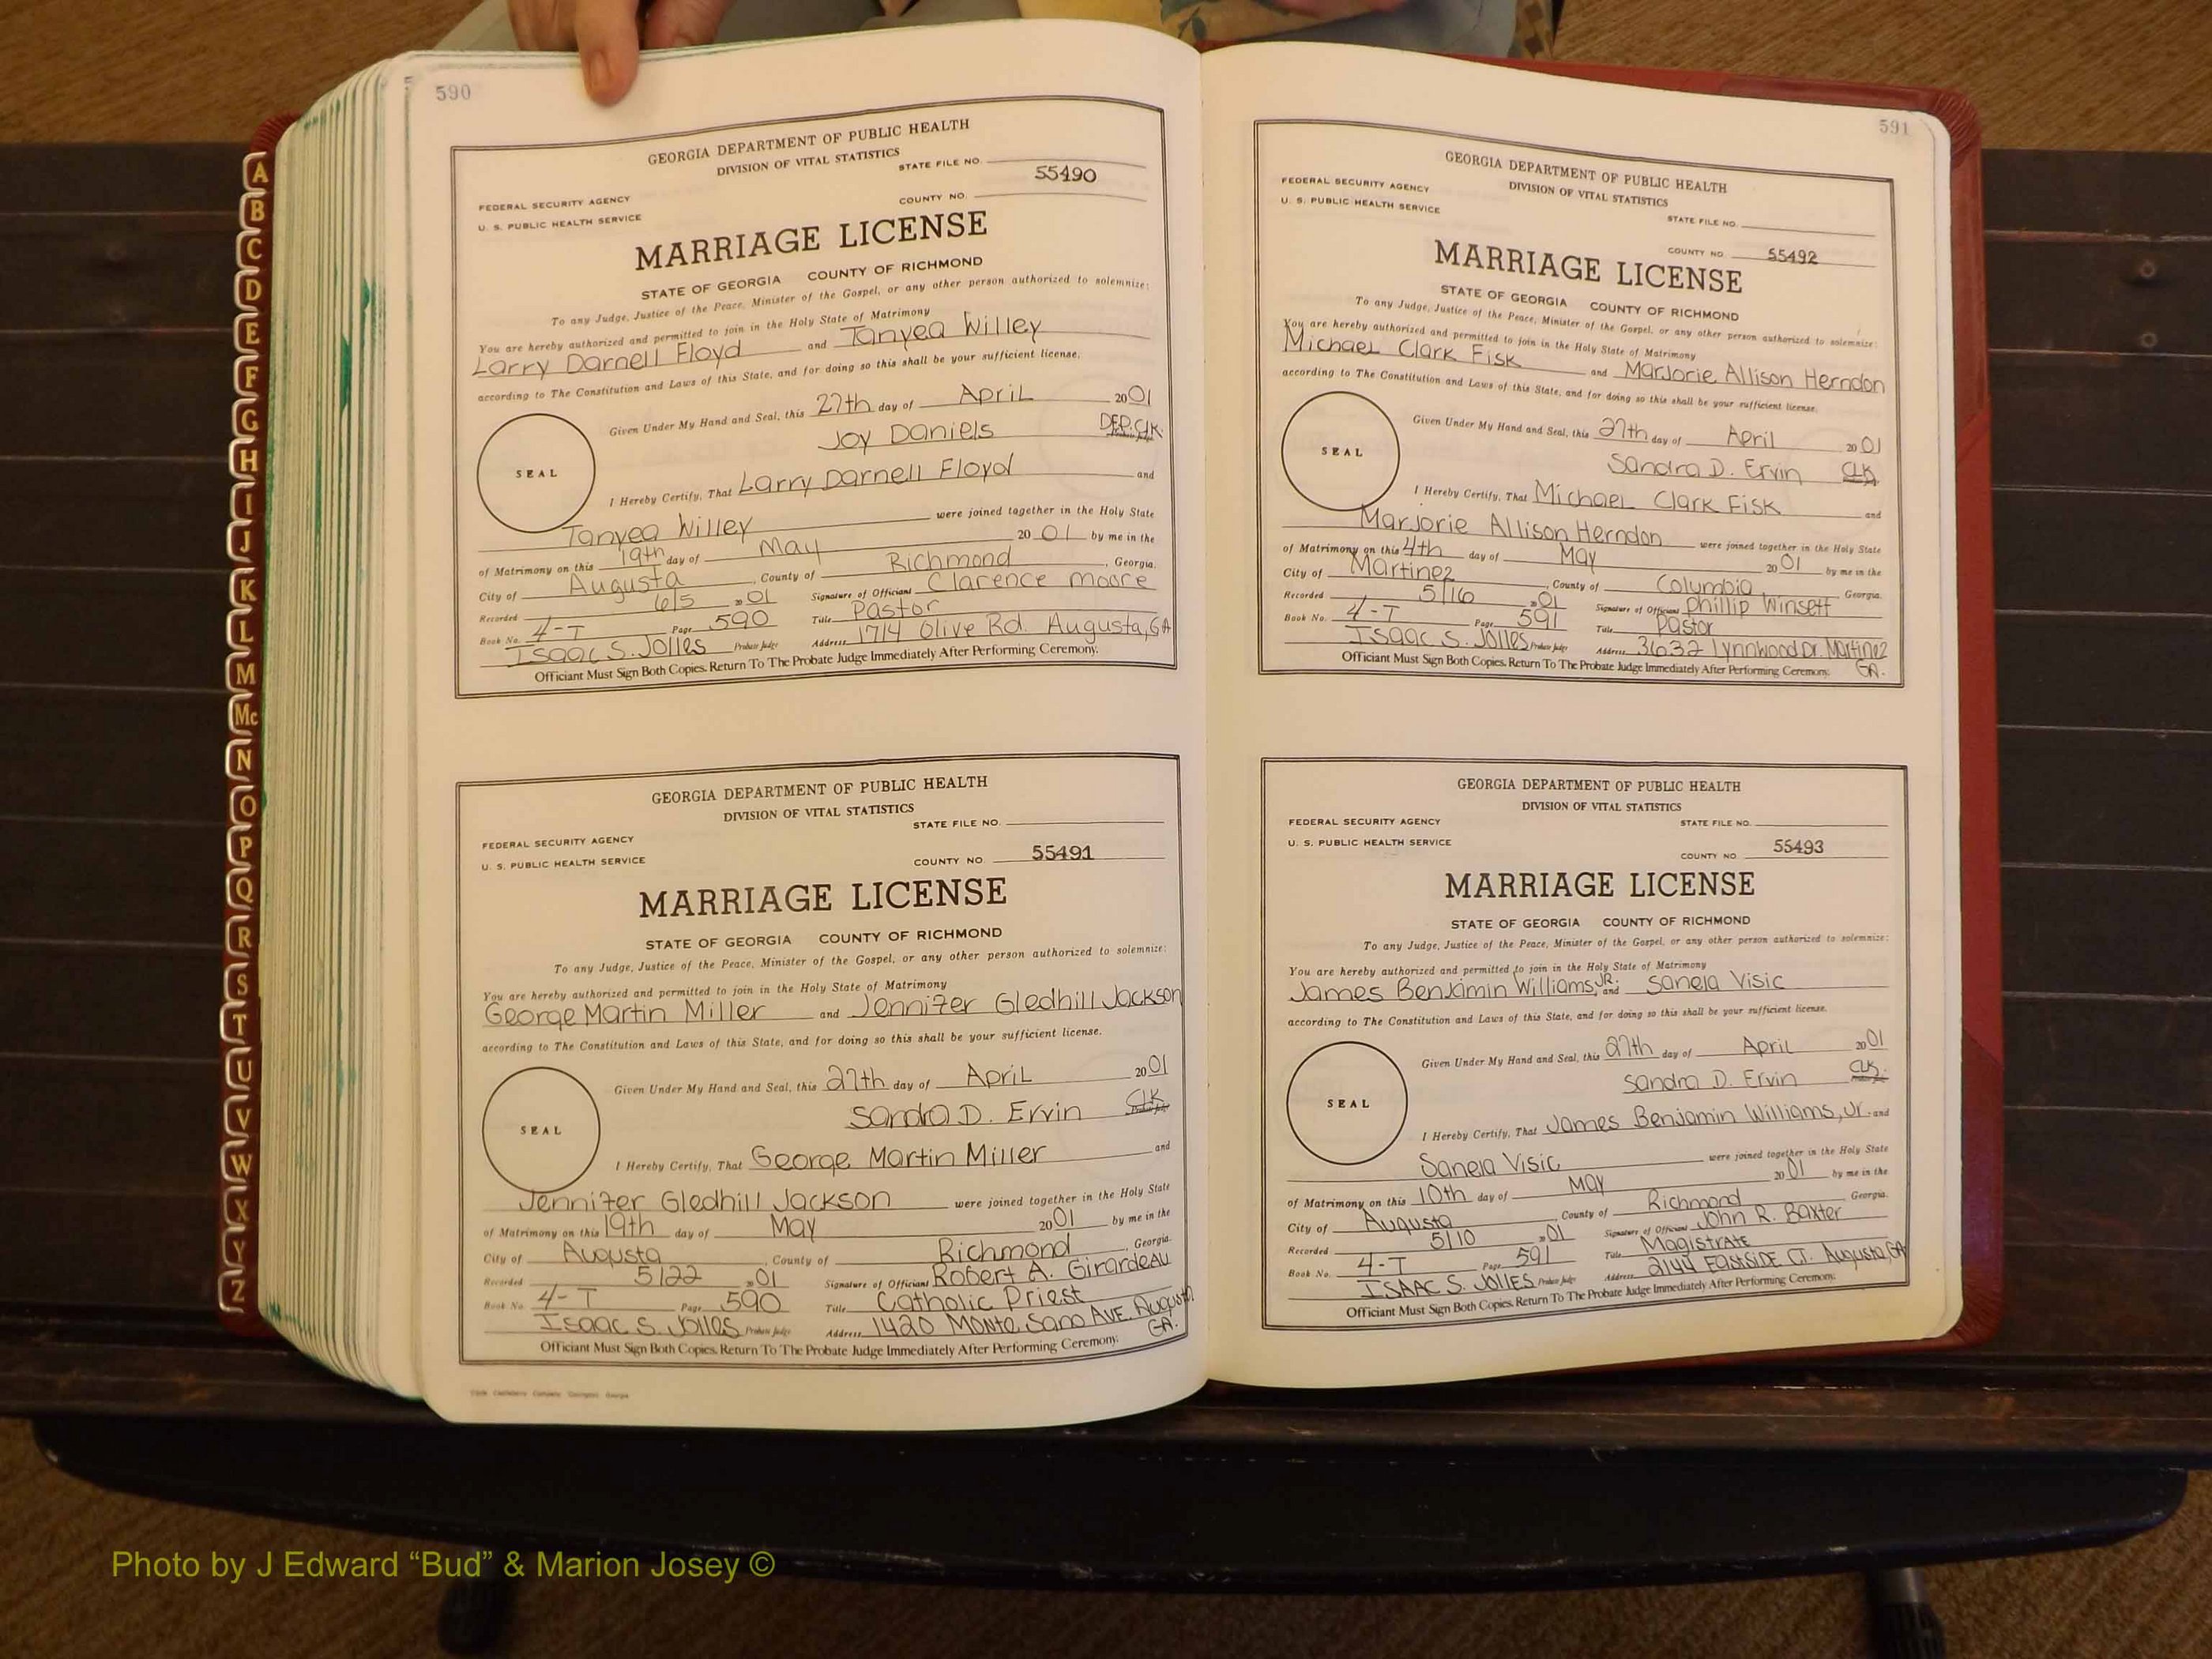 590
GEORGIA DEPARTMENT OF PUBLIC HEALTH
DIVISION OF VITAL STATISTICS
STATE FILE NO.
55490
FEDERAL SECURITY AGENCY
COUNTY NO.
U. S. PUBLIC HEALTH SERVICE
MARRIAGE LICENSE
STATE OF GEORGIA COUNTY OF RICHMOND
To any Judge, Justice of the Peace, Minister of the Gospel, or any other person authorized to solemnize:
You are hereby authorized and permitted to join in the Holy State of Matrimony
Larry Darnell Floyd and Tanyea Willey
according to The Constitution and Laws of this State, and for doing so this shall be your sufficient license.
Given Under My Hand and Seal, this 27th day of April 2001
Joy Daniels DEP. CLK.
SEAL
I Hereby Certify, That Larry Darnell Floyd and
Tanyea Willey were joined together in the Holy State
of Matrimony on this 19th day of May 2001 by me in the
City of Augusta, County of Richmond, Georgia.
Recorded 6/5 2001 Signature of Officiant Clarence Moore
Book No. 4-T Page 590 Title Pastor
Isaac S. Jolles Probate Judge Address 1714 Olive Rd. Augusta, GA
Officiant Must Sign Both Copies. Return To The Probate Judge Immediately After Performing Ceremony.
GEORGIA DEPARTMENT OF PUBLIC HEALTH
DIVISION OF VITAL STATISTICS
STATE FILE NO.
FEDERAL SECURITY AGENCY
U. S. PUBLIC HEALTH SERVICE
COUNTY NO. 55491
MARRIAGE LICENSE
STATE OF GEORGIA COUNTY OF RICHMOND
To any Judge, Justice of the Peace, Minister of the Gospel, or any other person authorized to solemnize:
You are hereby authorized and permitted to join in the Holy State of Matrimony
George Martin Miller and Jennifer Gledhill Jackson
according to The Constitution and Laws of this State, and for doing so this shall be your sufficient license.
Given Under My Hand and Seal, this 27th day of April 2001
Sandra D. Ervin CLK
SEAL
I Hereby Certify, That George Martin Miller and
Jennifer Gledhill Jackson were joined together in the Holy State
of Matrimony on this 19th day of May 2001 by me in the
City of Augusta, County of Richmond, Georgia.
Recorded 5/22 2001 Signature of Officiant Robert A. Girardeau
Book No. 4-T Page 590 Title Catholic Priest
Isaac S. Jolles Probate Judge Address 1420 Monte Sano AVE. Augusta, GA.
Officiant Must Sign Both Copies. Return To The Probate Judge Immediately After Performing Ceremony.
591
GEORGIA DEPARTMENT OF PUBLIC HEALTH
DIVISION OF VITAL STATISTICS
FEDERAL SECURITY AGENCY
U. S. PUBLIC HEALTH SERVICE
STATE FILE NO.
COUNTY NO. 55492
MARRIAGE LICENSE
STATE OF GEORGIA COUNTY OF RICHMOND
To any Judge, Justice of the Peace, Minister of the Gospel, or any other person authorized to solemnize:
You are hereby authorized and permitted to join in the Holy State of Matrimony
Michael Clark Fisk and Marjorie Allison Herndon
according to The Constitution and Laws of this State, and for doing so this shall be your sufficient license.
Given Under My Hand and Seal, this 27th day of April 2001
Sandra D. Ervin CLK
SEAL
I Hereby Certify, That Michael Clark Fisk and
Marjorie Allison Herndon were joined together in the Holy State
of Matrimony on this 4th day of May 2001 by me in the
City of Martinez, County of Columbia, Georgia.
Recorded 5/16 2001 Signature of Officiant Phillip Winsett
Book No. 4-T Page 591 Title Pastor
Isaac S. Jolles Probate Judge Address 3632 Lynnwood Dr. Martinez GA.
Officiant Must Sign Both Copies. Return To The Probate Judge Immediately After Performing Ceremony.
GEORGIA DEPARTMENT OF PUBLIC HEALTH
DIVISION OF VITAL STATISTICS
FEDERAL SECURITY AGENCY
STATE FILE NO.
U. S. PUBLIC HEALTH SERVICE
COUNTY NO. 55493
MARRIAGE LICENSE
STATE OF GEORGIA COUNTY OF RICHMOND
To any Judge, Justice of the Peace, Minister of the Gospel, or any other person authorized to solemnize:
You are hereby authorized and permitted to join in the Holy State of Matrimony
James Benjamin Williams, JR. and Sanela Visic
according to The Constitution and Laws of this State, and for doing so this shall be your sufficient license.
Given Under My Hand and Seal, this 27th day of April 2001
Sandra D. Ervin CLK.
SEAL
I Hereby Certify, That James Benjamin Williams, Jr. and
Sanela Visic were joined together in the Holy State
of Matrimony on this 10th day of May 2001 by me in the
City of Augusta, County of Richmond, Georgia.
Recorded 5/10 2001 Signature of Officiant John R. Baxter
Book No. 4-T Page 591 Title Magistrate
ISAAC S. JOLLES Probate Judge Address 2144 EastSIDE CT. Augusta, GA
Officiant Must Sign Both Copies. Return To The Probate Judge Immediately After Performing Ceremony.
A
B
C
D
E
F
G
H
I
J
K
L
M
Mc
N
O
P
Q
R
S
T
U
V
W
X
Y
Z
Photo by J Edward “Bud” & Marion Josey ©